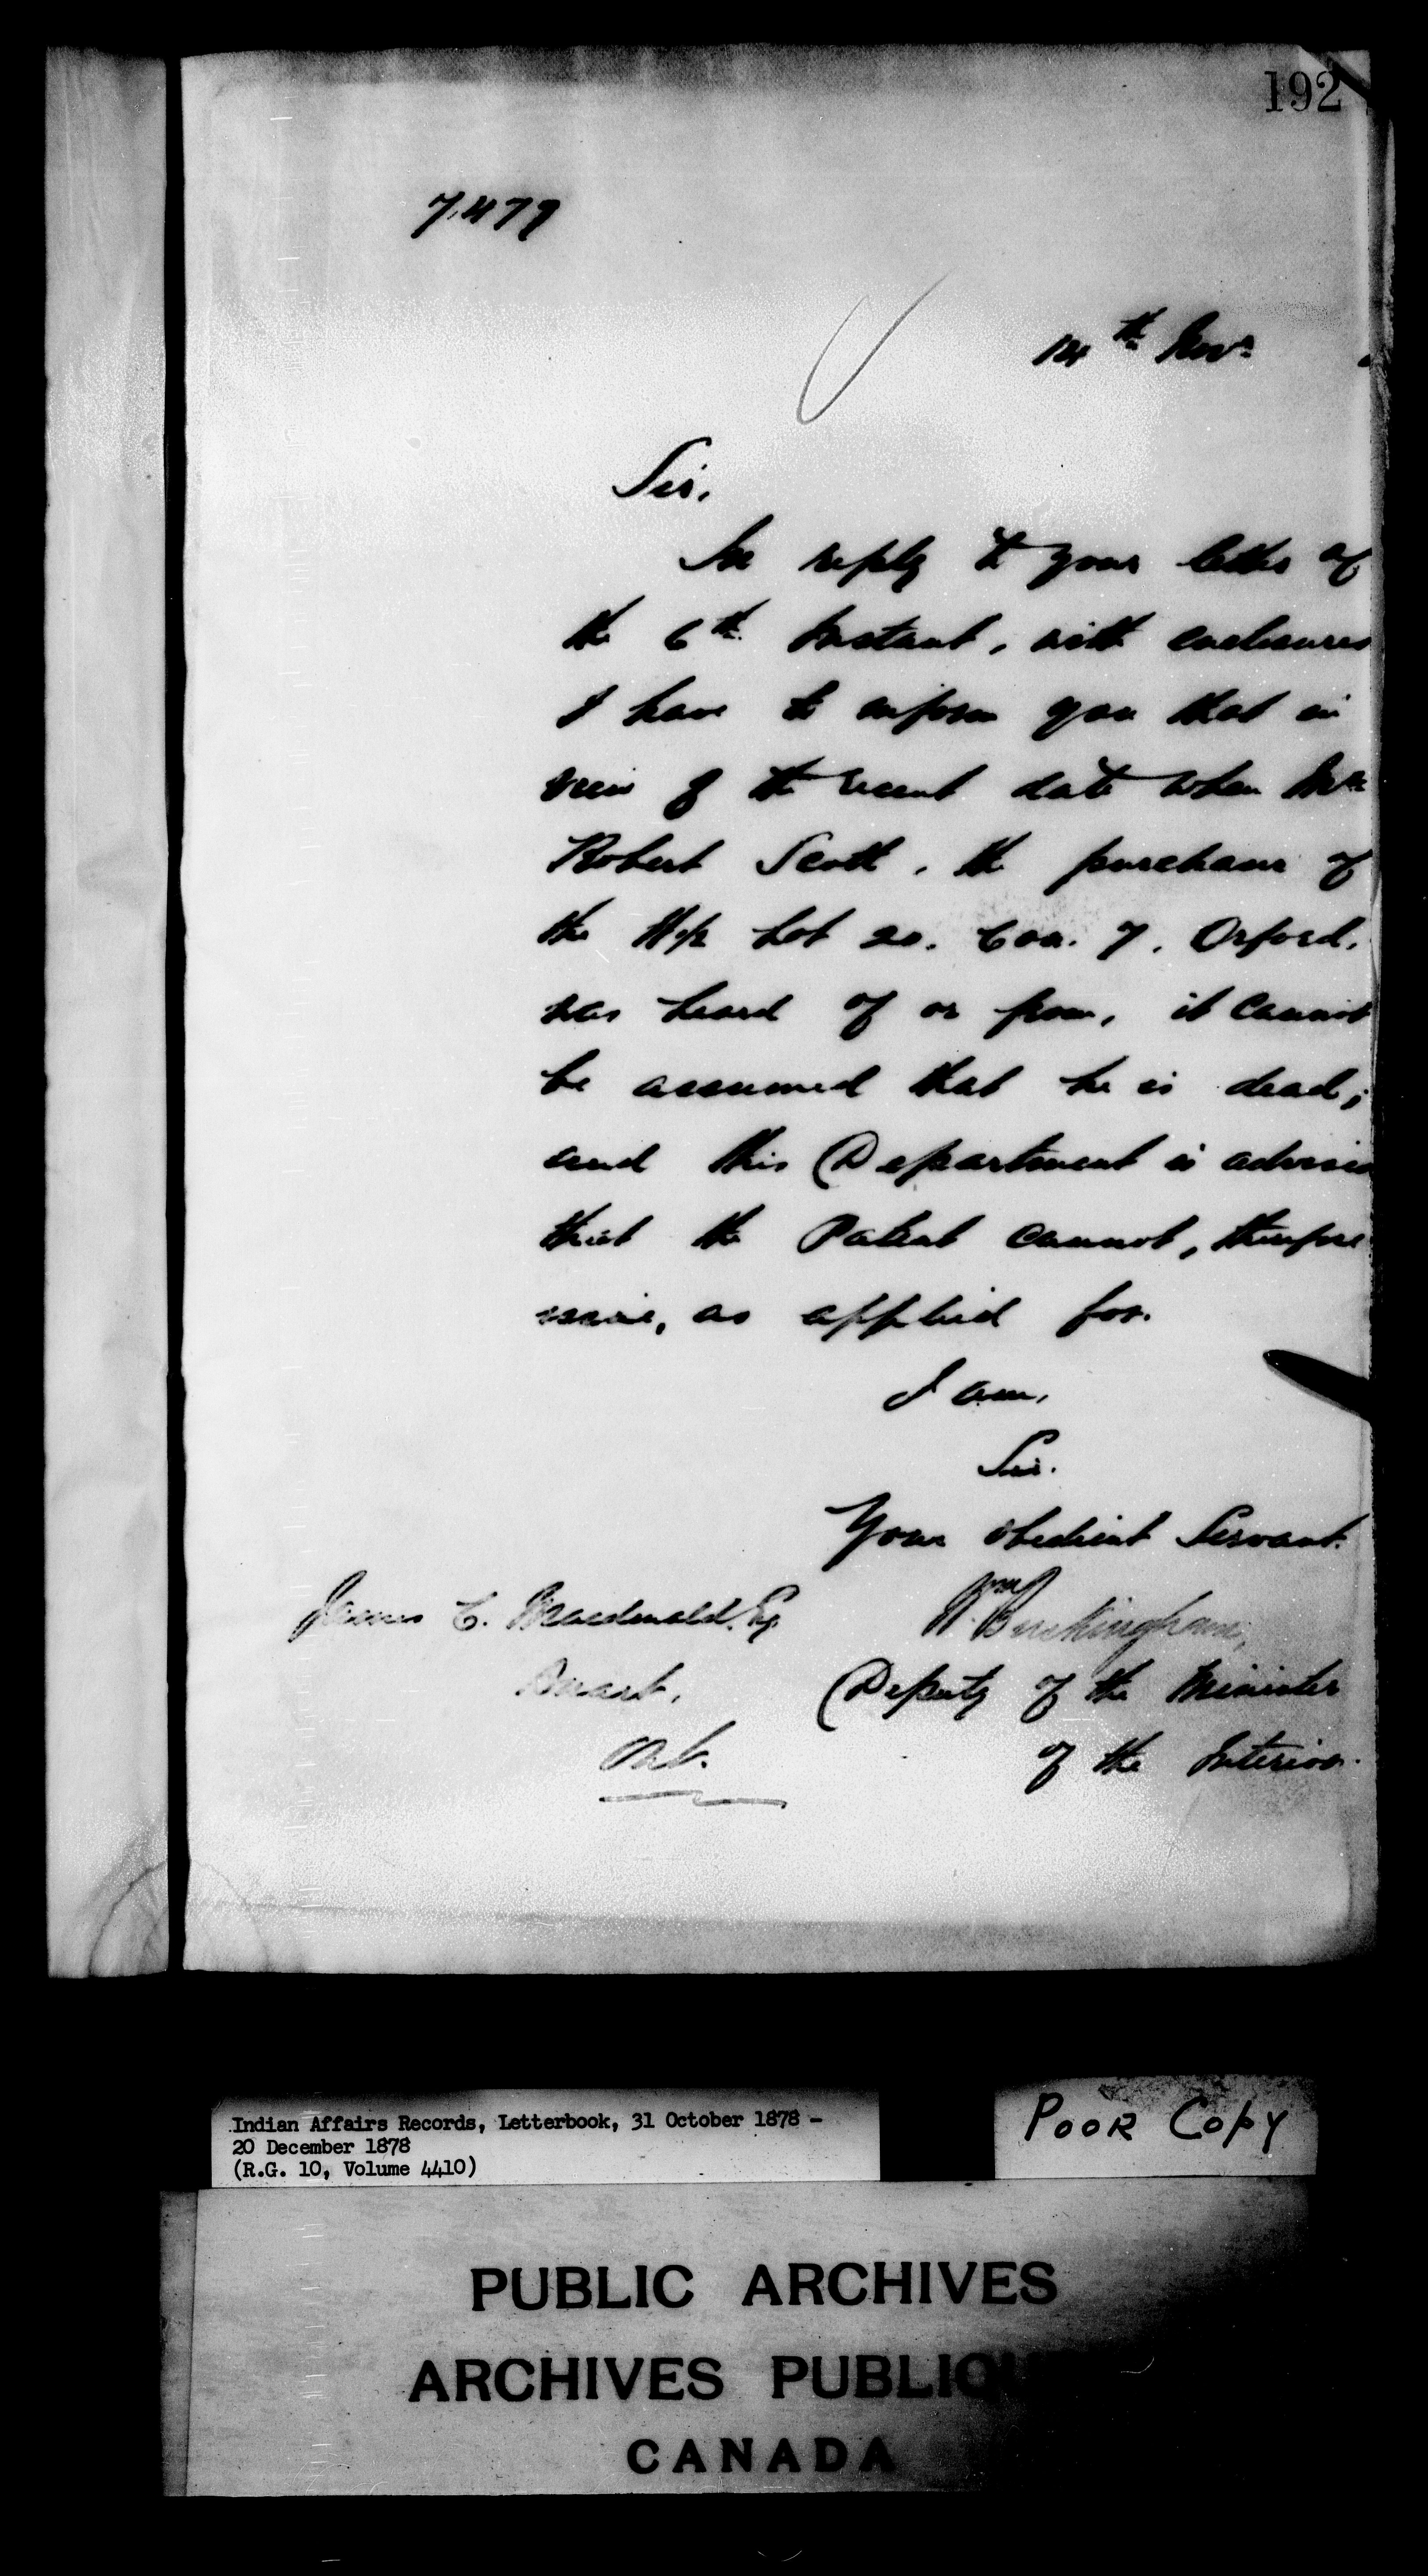 192
7,479
14th Novr
Sir,
In reply to your letter of
the 6th Instant, with enclosures
I have to inform you that in
view of the recent date when Mr
Robert Scott, the purchaser of
the Lot 20. Con. 7. Orford,
was heard of or from, it cannot
be assumed that he is dead;
and this Department is advised
that the Patent cannot, therefore
issue, as applied for.
I am,
Sir.
Your obedient Servant.
James C. Macdonald. Esq
Wm Buckingham,
Duart,
Deputy of the Minister
Ont.
of the Interior.
Indian Affairs Records, Letterbook, 31 October 1878 -
20 December 1878
(R.G. 10, Volume 4410)
POOR COPY
PUBLIC ARCHIVES
ARCHIVES PUBLIQU
CANADA